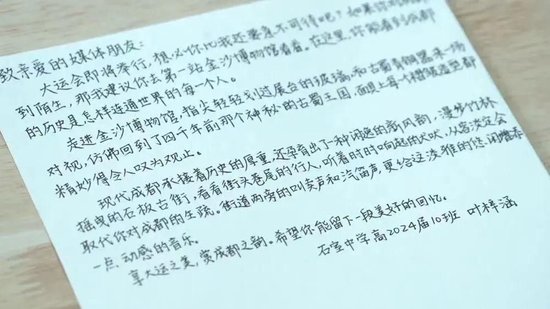 致亲爱的媒体朋友：
大运会即将举行，想必你比我还要急不可待吧？如果你对成都
到陌生，那我建议你去第一站金沙博物馆看看。在这里，你能看到成都
的历史是怎样连通世界的每一个人。
走进金沙博物馆，指尖轻轻划过展台的玻璃，和古蜀青铜器来一场
对视，仿佛回到了四千年前那个神秘的古蜀王国，面具上每个镂银造型都
精妙得令人叹为观止。
现代成都承接着历史的厚重，还孕育出了一种闲逸的新风韵，漫步竹林
摇曳的石板古街，看看街头巷尾的行人，听着时时响起的犬吠，从容淡定会
取代你对成都的生疏。街道两旁的叫卖声和汽笛声，更给这淡雅的信
一点动感的音乐。
享大运之美，赏成都之韵。希望你能留下一段美好的回忆。
石室中学高2024届10班 叶梓涵